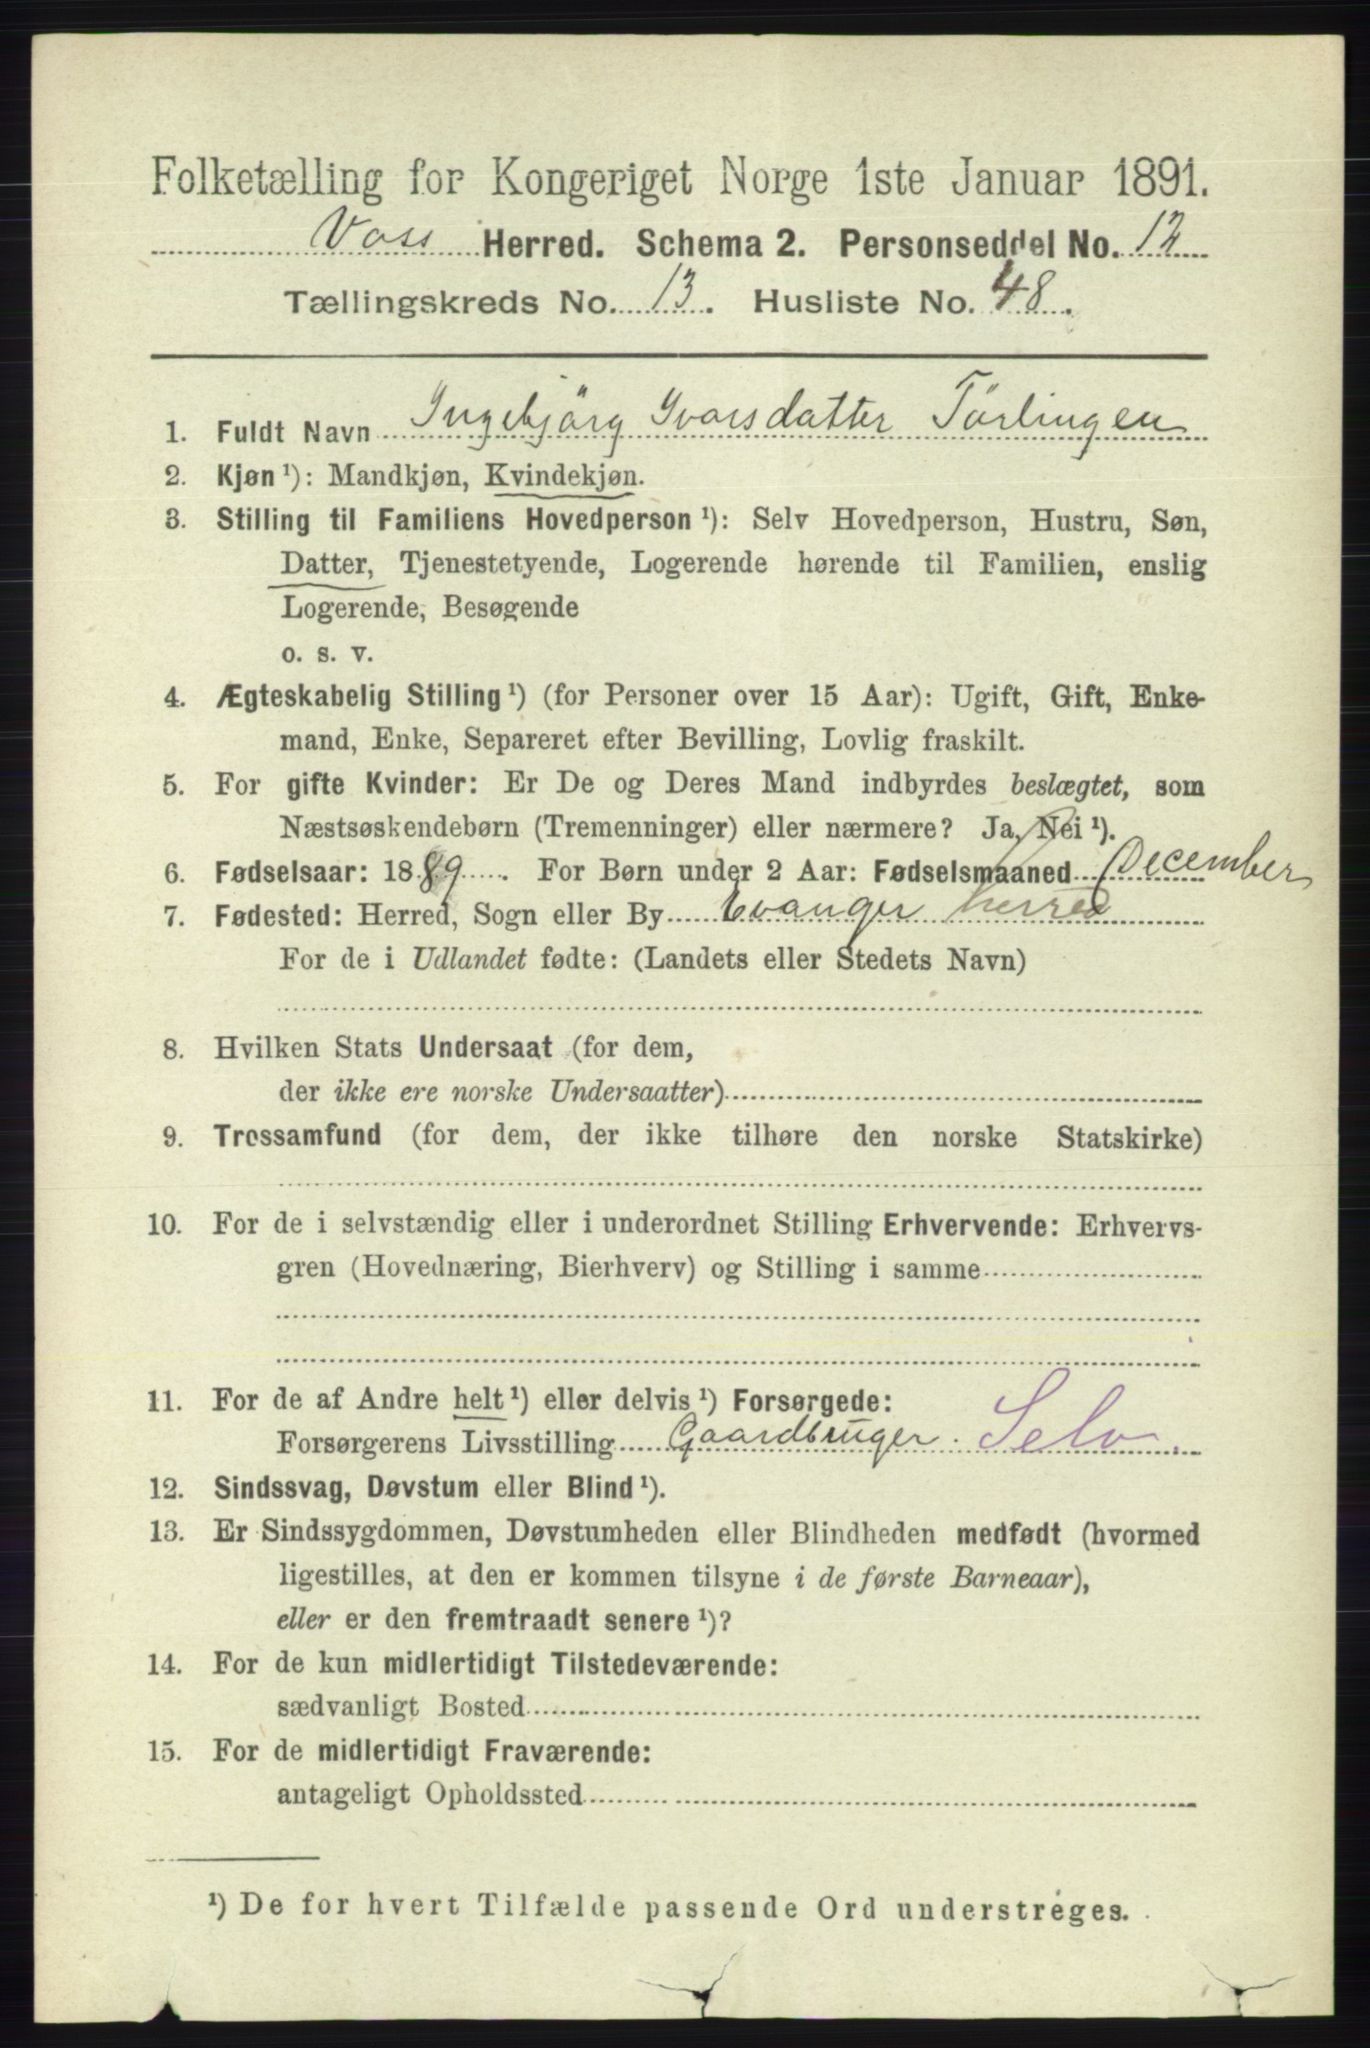 Folketælling for Kongeriget Norge 1ste Januar 1891.
Voss Herred. Schema 2. Personseddel No. 12
Tællingskreds No. 13. Husliste No. 48.
1. Fuldt Navn Ingebjörg Ivarsdatter Törlingen
2. Kjøn ¹): Mandkjøn, Kvindekjøn.
3. Stilling til Familiens Hovedperson ¹): Selv Hovedperson, Hustru, Søn,
Datter, Tjenestetyende, Logerende hørende til Familien, enslig
Logerende, Besøgende
o. s. v.
4. Ægteskabelig Stilling ¹) (for Personer over 15 Aar): Ugift, Gift, Enke-
mand, Enke, Separeret efter Bevilling, Lovlig fraskilt.
5. For gifte Kvinder: Er De og Deres Mand indbyrdes beslægtet, som
Næstsøskendebørn (Tremenninger) eller nærmere? Ja, Nei ¹).
6. Fødselsaar: 1889. For Børn under 2 Aar: Fødselsmaaned December
7. Fødested: Herred, Sogn eller By Evanger herred
For de i Udlandet fødte: (Landets eller Stedets Navn)
8. Hvilken Stats Undersaat (for dem,
der ikke ere norske Undersaatter)
9. Trossamfund (for dem, der ikke tilhøre den norske Statskirke)
10. For de i selvstændig eller i underordnet Stilling Erhvervende: Erhvervs-
gren (Hovednæring, Bierhverv) og Stilling i samme
11. For de af Andre helt ¹) eller delvis ¹) Forsørgede:
Forsørgerens Livsstilling Gaardbruger. Selv.
12. Sindssvag, Døvstum eller Blind ¹).
13. Er Sindssygdommen, Døvstumheden eller Blindheden medfødt (hvormed
ligestilles, at den er kommen tilsyne i de første Barneaar),
eller er den fremtraadt senere ¹)?
14. For de kun midlertidigt Tilstedeværende:
sædvanligt Bosted
15. For de midlertidigt Fraværende:
antageligt Opholdssted
¹) De for hvert Tilfælde passende Ord understreges.